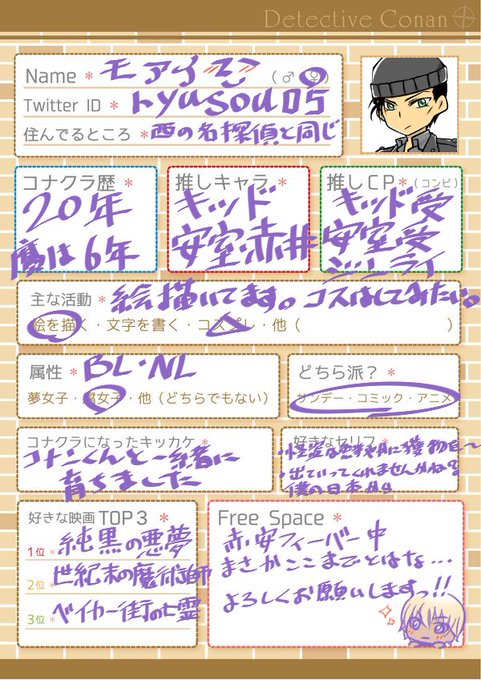 Detective Conan
Name * モアイマン (♂・♀)
Twitter ID * ryusou05
住んでるところ * 西の名探偵と同じ
コナクラ歴 *
20年
腐は6年
推しキャラ *
キッド
安室・赤井
推しCP * (コンビ)
キッド受
安室受
主な活動 * 絵描いてます。コスはしてみたい。
絵を描く・文字を書く・コスプレ・他( )
属性 * BL・NL
夢女子・腐女子・他(どちらでもない)
どちら派? *
サンデー・コミック・アニメ
コナクラになったキッカケ *
コナンくんと一緒に
育ちました
好きなセリフ *
出ていってくれませんかねぇ
僕の日本から
好きな映画 TOP3 *
1位 * 純黒の悪夢
2位 * 世紀末の魔術師
3位 * ベイカー街の亡霊
Free Space *
赤安フィーバー中
まさかここまでとはな…
よろしくお願いしますっ!!